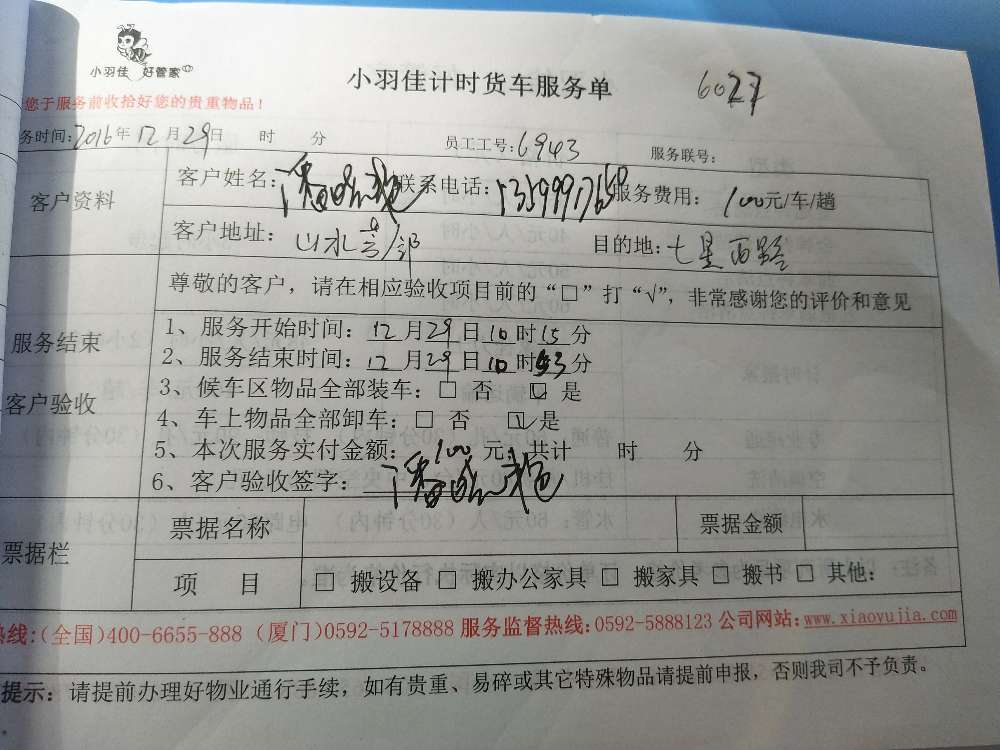 小羽佳 好管家
小羽佳计时货车服务单 6027
您于服务前收拾好您的贵重物品！
务时间:2016年12月29日 时 分 员工工号:6943 服务联号:
客户资料
客户姓名: 联系电话: 服务费用: 100元/车/趟
客户地址: 山水 目的地:七星西路
尊敬的客户，请在相应验收项目前的“□”打“√”，非常感谢您的评价和意见
服务结束
客户验收
1、服务开始时间:12月29日10时15分
2、服务结束时间:12月29日10时53分
3、候车区物品全部装车:□ 否 ☑ 是
4、车上物品全部卸车:□ 否 ☑ 是
5、本次服务实付金额: 100 元，共计 时 分
6、客户验收签字:
票据栏
票据名称 票据金额
项 目 □ 搬设备 □ 搬办公家具 □ 搬家具 □ 搬书 □ 其他:
热线:(全国)400-6655-888 (厦门)0592-5178888 服务监督热线:0592-5888123 公司网站:www.xiaoyujia.com
提示: 请提前办理好物业通行手续，如有贵重、易碎或其它特殊物品请提前申报，否则我司不予负责。